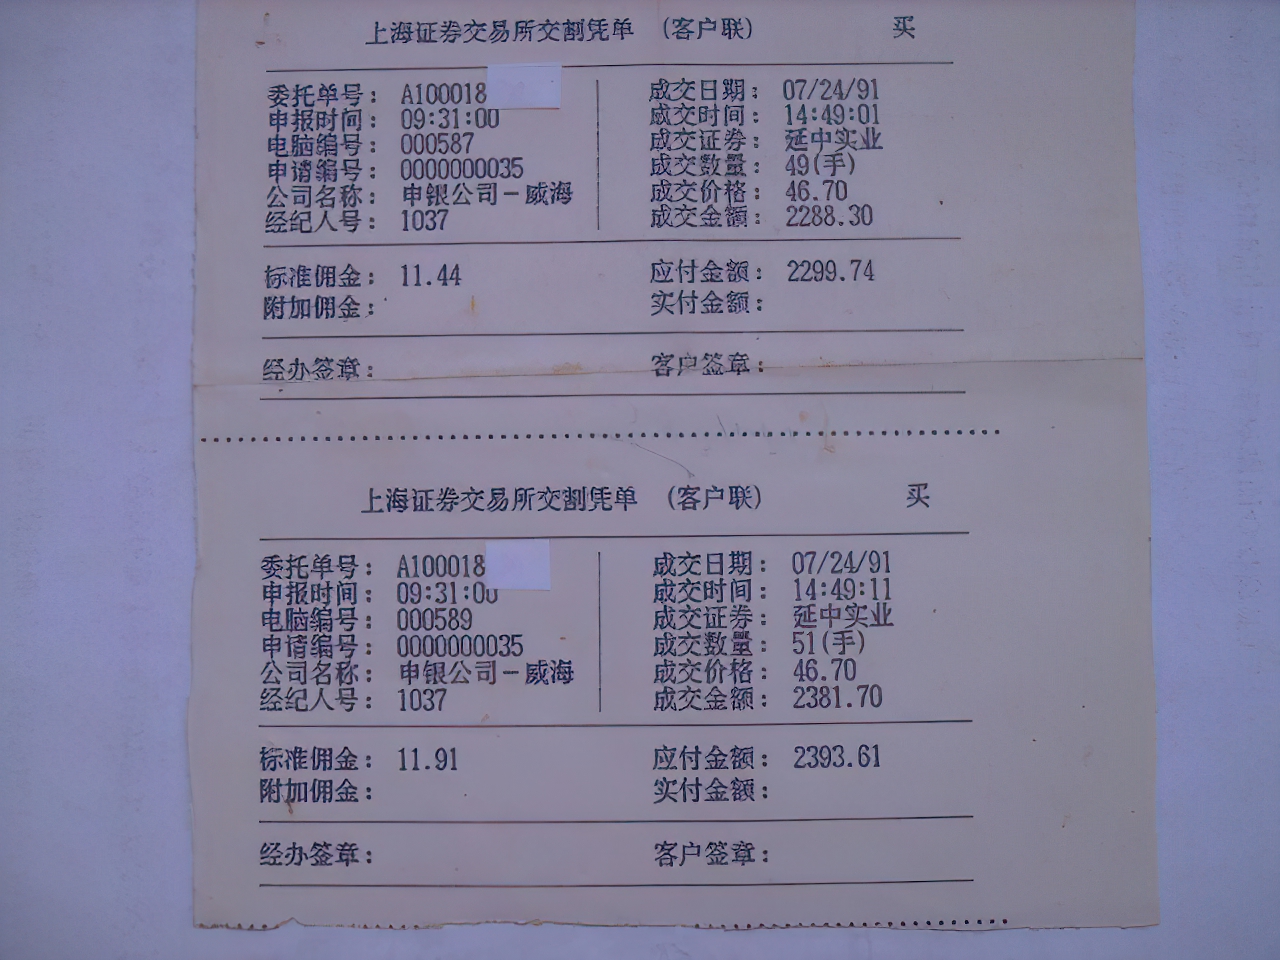 上海证券交易所交割凭单 (客户联) 买
委托单号: A100018 成交日期: 07/24/91
申报时间: 09:31:00 成交时间: 14:49:01
电脑编号: 000587 成交证券: 延中实业
申请编号: 0000000035 成交数量: 49(手)
公司名称: 申银公司-威海 成交价格: 46.70
经纪人号: 1037 成交金额: 2288.30
标准佣金: 11.44 应付金额: 2299.74
附加佣金: 实付金额:
经办签章: 客户签章:
上海证券交易所交割凭单 (客户联) 买
委托单号: A100018 成交日期: 07/24/91
申报时间: 09:31:00 成交时间: 14:49:11
电脑编号: 000589 成交证券: 延中实业
申请编号: 0000000035 成交数量: 51(手)
公司名称: 申银公司-威海 成交价格: 46.70
经纪人号: 1037 成交金额: 2381.70
标准佣金: 11.91 应付金额: 2393.61
附加佣金: 实付金额:
经办签章: 客户签章: